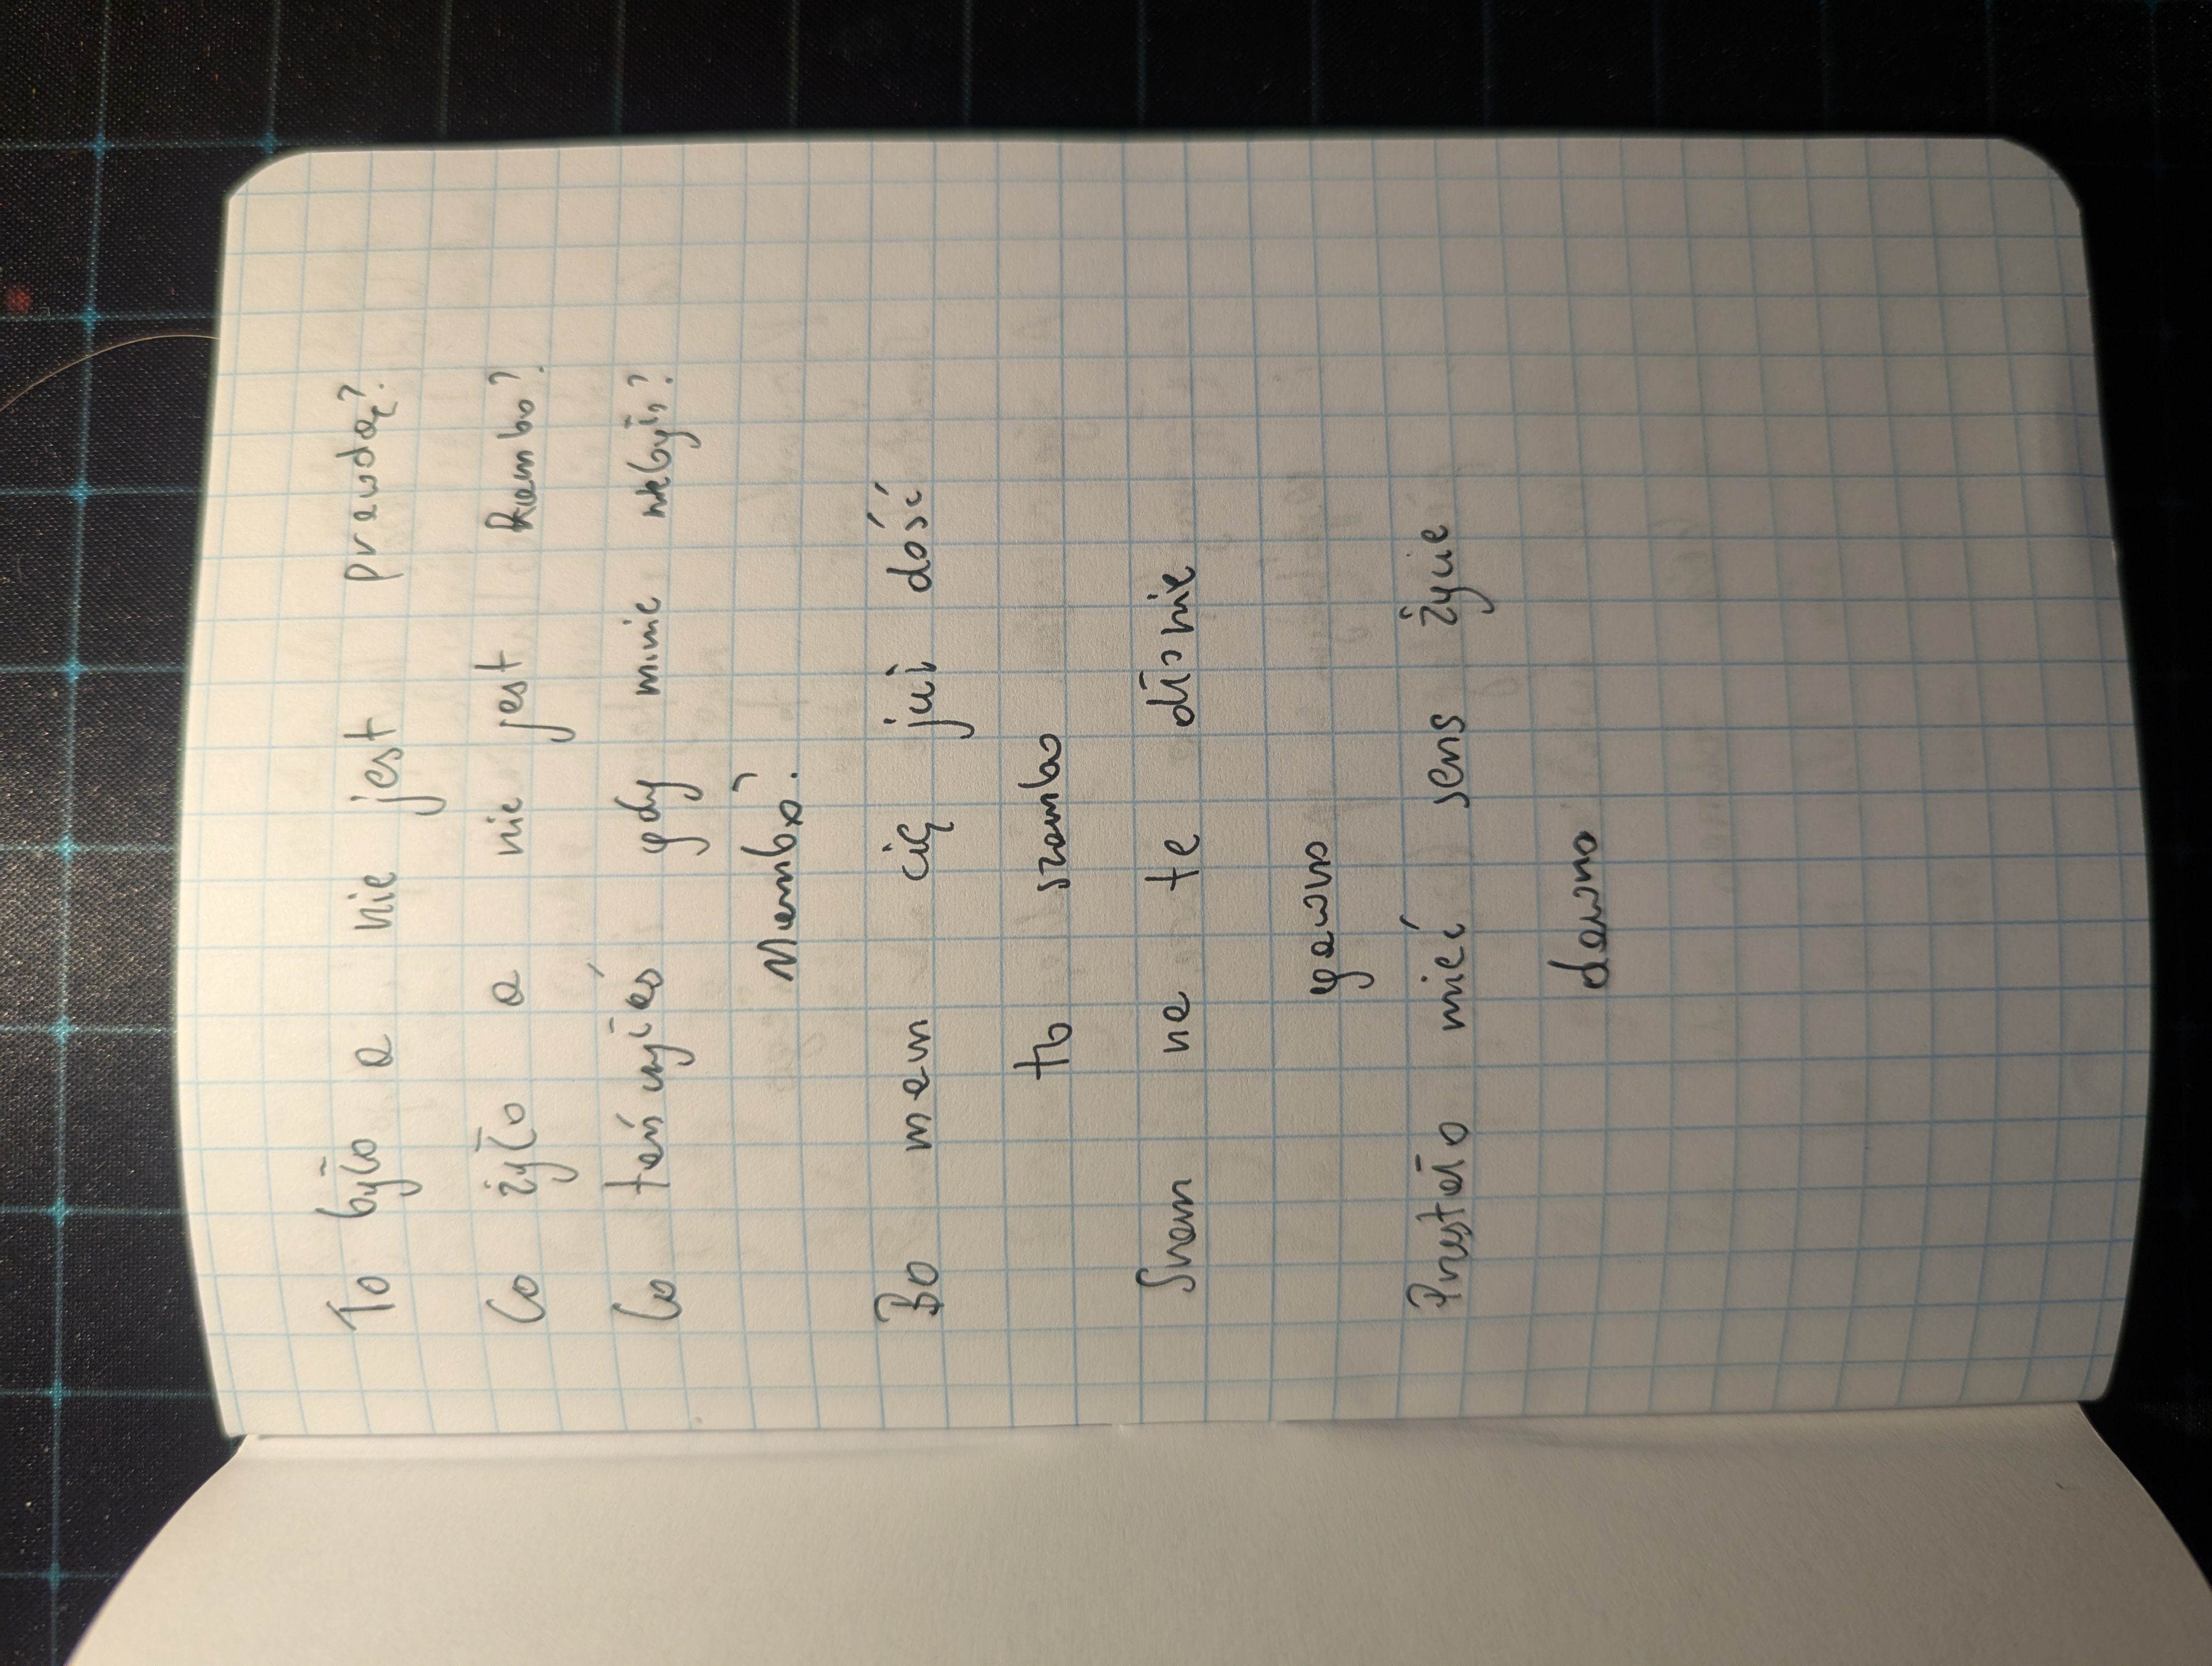 To było a nie jest prawdą?
Co żyło a nie jest Rambo?
Co tańczyłeś gdy minie niebyło?
Mambo?
Bo mam cię już dość
to szambo
Sram na te dłonie
gówno
Przestało mieć sens życie
dawno